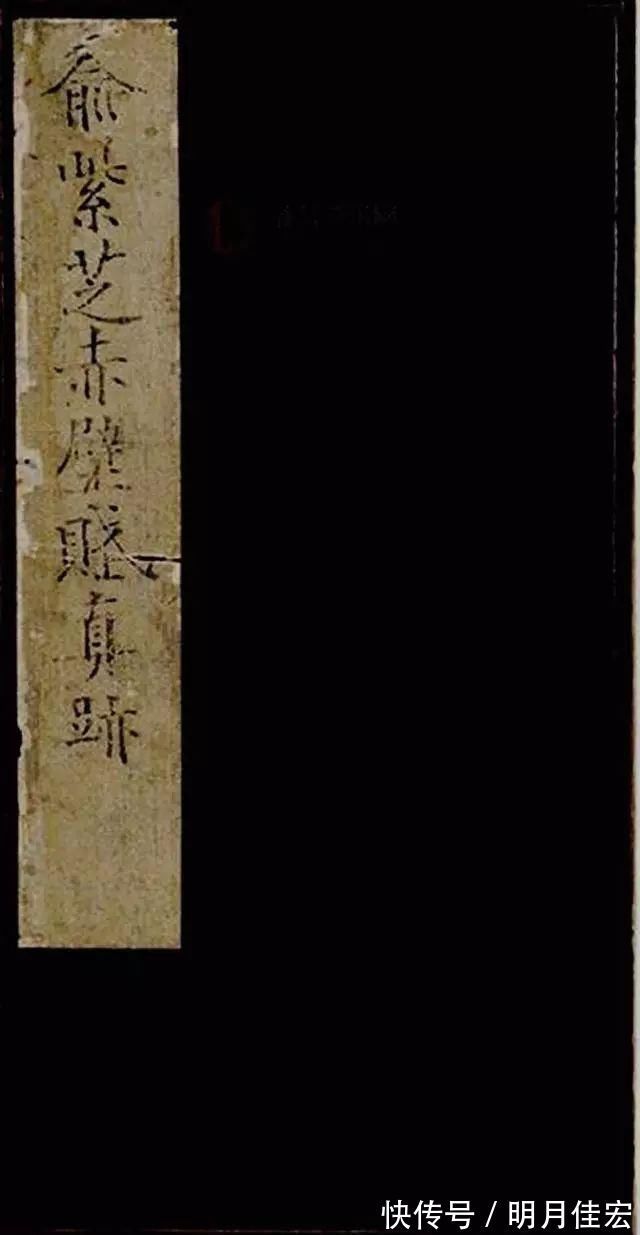 俞紫芝赤壁賦真跡
快传号/明月佳宏